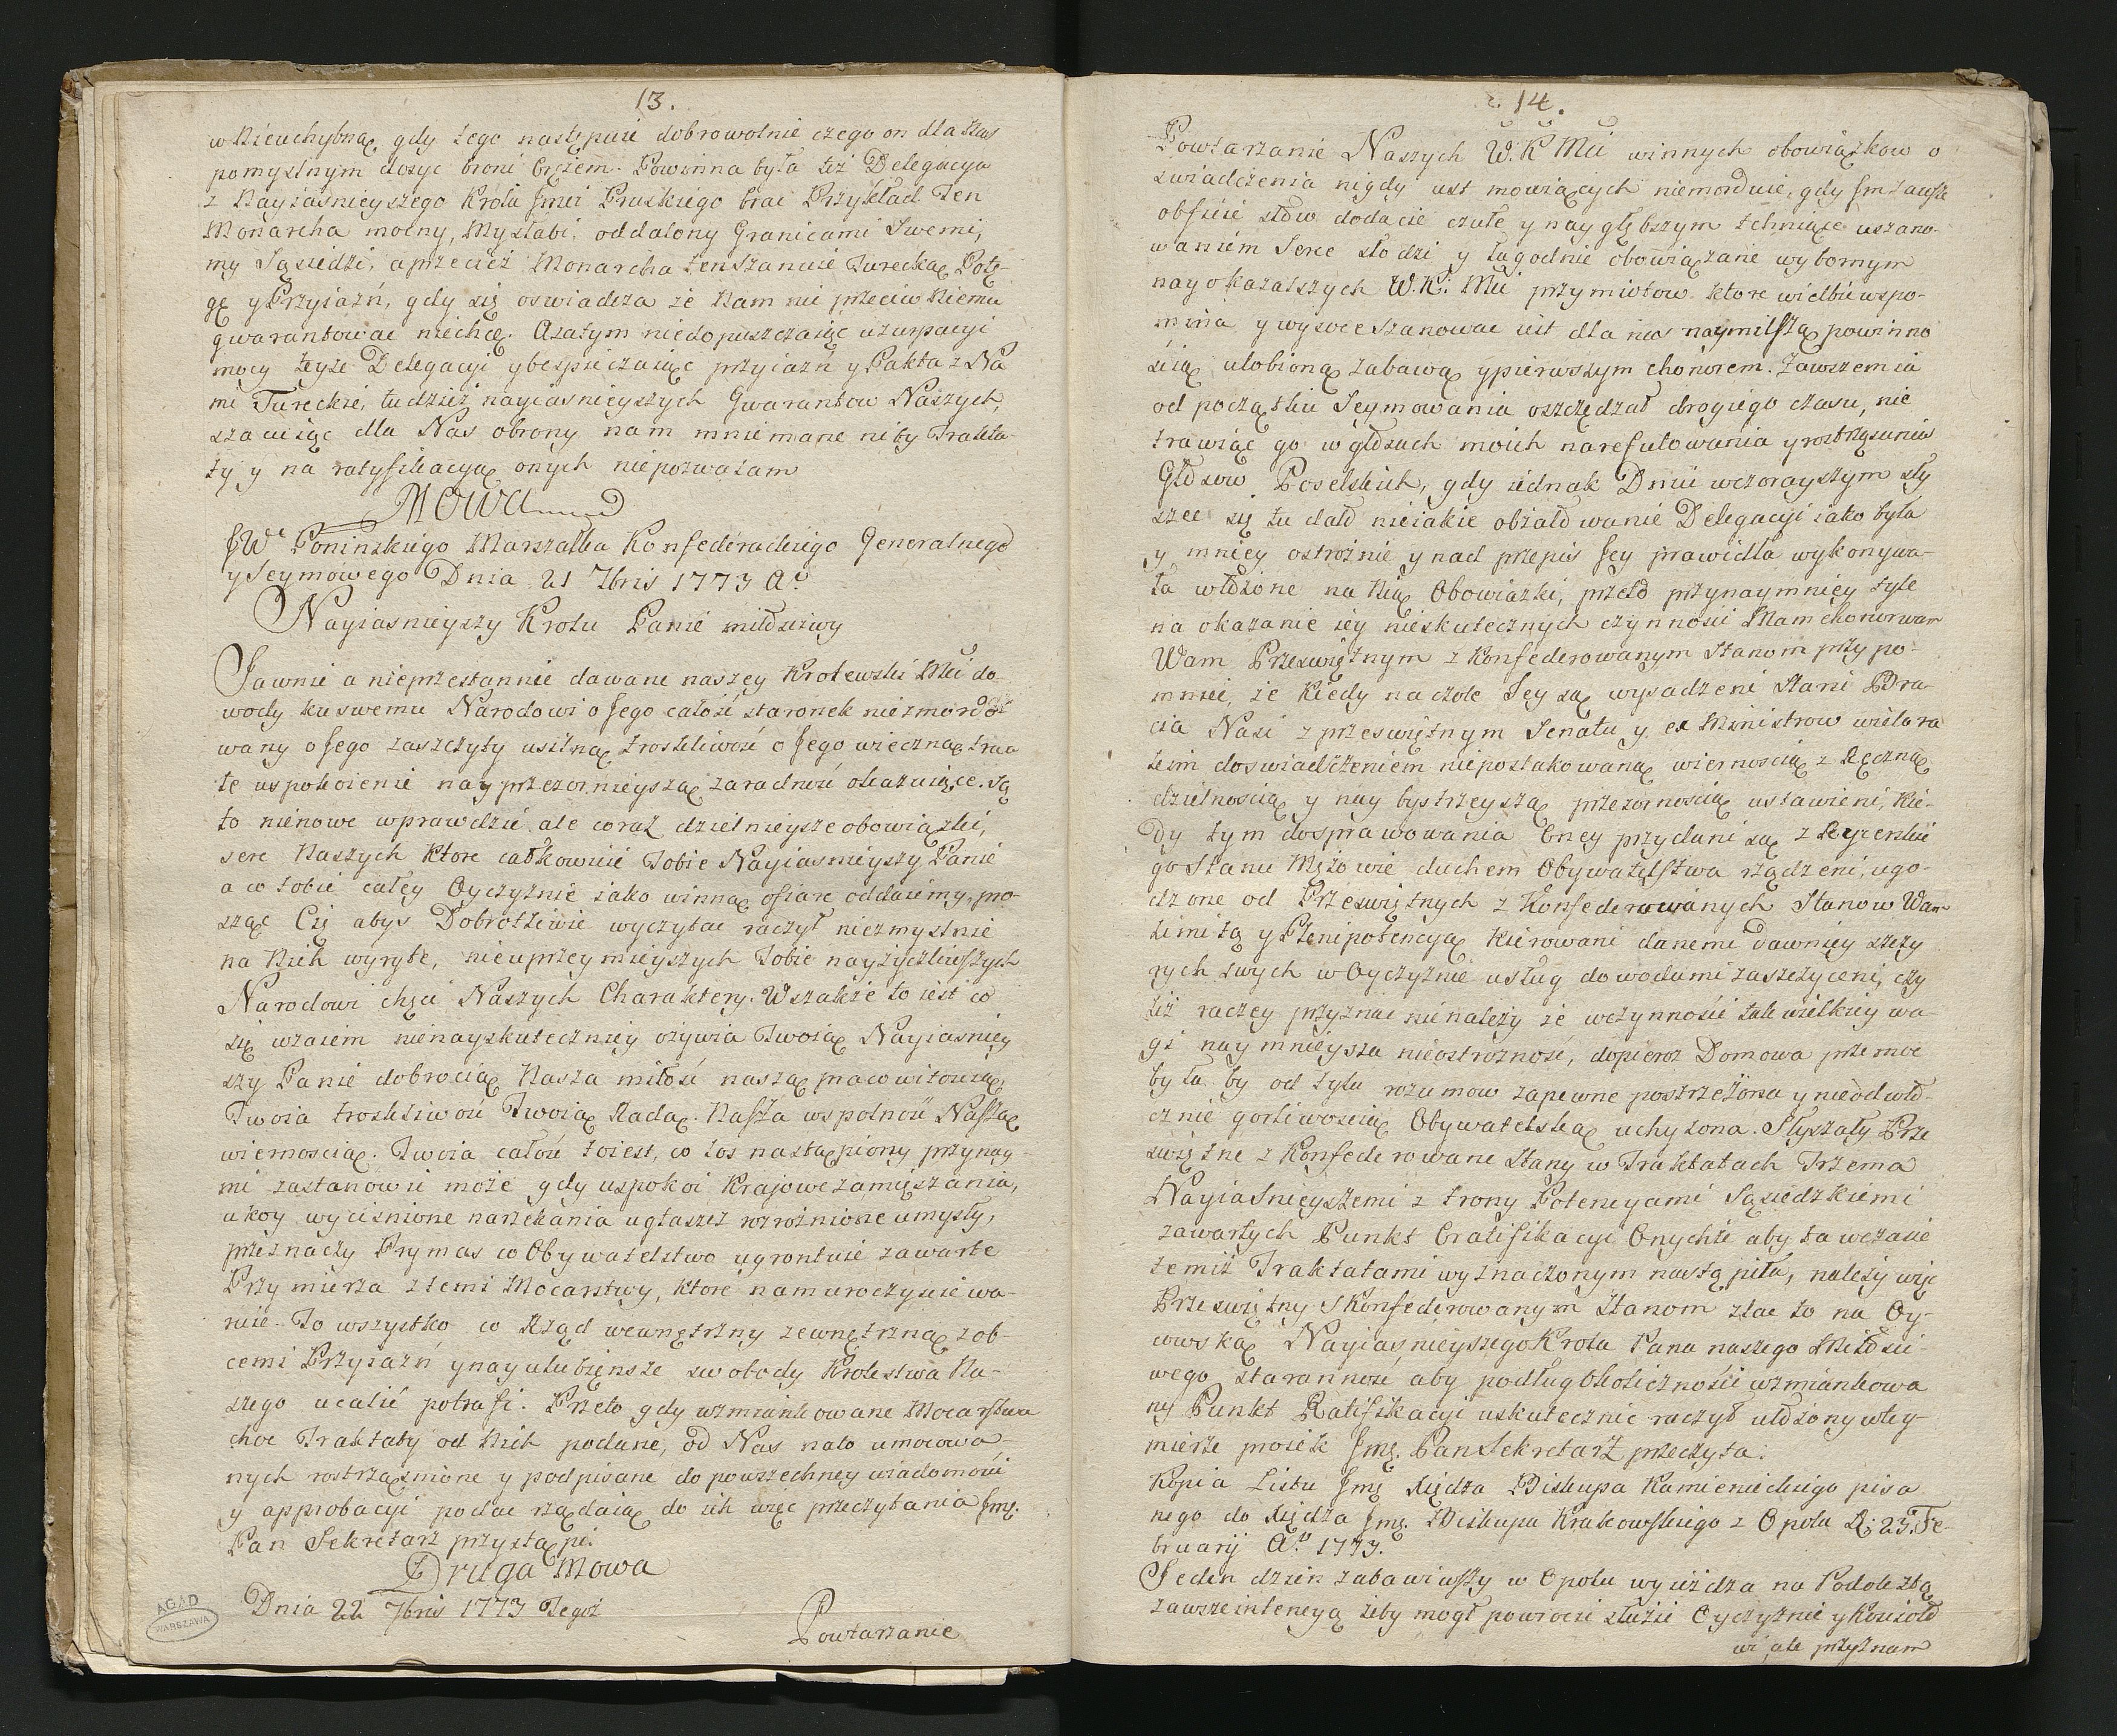 13.
w Nieuchybną, gdy tego następuie dobrowolnie czego on dla Nas
pomyslnym dosyc broni Orężem. Powinna była też Delegacya
z Nayiasnieyszego Krola Jmci Pruskiego brac Przykład Ten
Monarcha mocny, Mysłabi. oddalony Granicami Swemi,
my Sąsiedzi, a przecież Monarcha ten Szanuie Turecką Potę-
gę y Przyiaźń, gdy się oswiadcza że Nam nic przeciw Niemu
gwarantowac niechce. A zatym niedopuszczaiąc uzurpacyi
mocy teyże Delegacyi ybespieczaiąc przyiaźń y Pakta z Na
mi Tureckie, tudzież nayiasnieyszych Gwarantow Naszych,
szacuiąc dla Nas obrony nam mniemane niby Trakta-
ty y na ratyfikacyą onych niepozwalam
Mowa
JWo Poninskiego Marszałka Konfederackiego Generalnego
y Seymowego Dnia 21 7bris 1773 Ao
Nayiasnieyszy Krolu Panie miłosciwy
Jawnie a nieprzestannie dawane naszey Krolewski Mci do-
wody ku swemu Narodowi o Jego całość staronek niezmordo-
wany o Jego zaszczyty usilną troskliwość o Jego wieczną trwa
łe uspokoienie nayprzezornieyszą zaradność okazuiące. Są
to nienowe wprawdzie ale coraz dzielnieysze obowiązki,
serc Naszych które całkowicie Tobie Nayiasnieyszy Panie
a w tobie całey Oyczyźnie iako winną ofiarę oddaiemy, pro-
sząc Cię abys Dobrotliwie wyczytac raczył niezmyslnie
na Nich wyryte, nieuprzeymieyszych Tobie nayżyczliwszych
Narodowi chęci Naszych Charaktery. Wszakże to iest co
się wzaiem nienayskuteczniey ożywia Twoią Nayiasniey
szy Panie dobrocią Nasza miłość naszą pracowitością,
Twoia troskliwość Twoią Radą. Nasza wspolność Naszą
wiernoscią. Twoia całość toiest, co los nastąpiony przynay-
mi zastanowic może gdy uspokoi Krajowe zamięszania,
ukoy wycisnione narzekania ugłaszcz rozroznione umysły,
przeznaczy Prymas co Obywatelstwo ugrontuie zawarte
Przymierza z temi Mocarstwy, które nam uroczyscie wa-
nie. To wszystko co Rząd wewnętrzny zewnętrzną z ob-
cemi Przyiaźń y nayulubiensze swobody Krolestwa Na-
szego ucalić potrafi. Przeto gdy wzmiankowane Mocarstwa
chce Traktaty od Nich podane, od Nas nato umocowa-
nych rostrząsnione y podpisane do powszechney wiadomosci
y approbacyi podac rządaią do ich więc przeczytania Jmę.
Pan Sekretarz przystąpi.
Druga Mowa
Dnia 22 7bris 1773 Tegoż
Powtarzanie
14.
Powtarzanie Naszych W. K Mci winnych obowiązkow o
swiadczenia nigdy ust mowiących niemorduie, gdy Im zawsze
obficie słow dodacie czułe y naygłębszym tchniące uszano-
waniem Serce słodzi y łagodnie obowiązanie wybornym
nayokazalszych W. K. Mci przymiotow. które wielbiewspo-
mina y wysoce szanowac iest dla nas naymilszą powinno
scią ulobioną zabawą ypierwszym chonorem. Zawszem ia
od początku Seymowania oszczędzał drogiego czasu, nie
trawiąc go w głosach moich narefutowania y rostrząsania
Głosow Poselskich, gdy iednak Dniu wczorayszym sły
szec się tu dało nieiakie obżałowanie Delegacyi iako była
y mniey ostrożnie y nad przepis Jey prawidła wykonywa-
ła włożone na Nią Obowiązki, przeto przynaymniey tyle
na okazanie iey nieskutecznych czynnosci Mam chonor wam
Wam Przeswiętnym z Konfederowanym Stanom przypo-
mniec, że Kiedy na czole Jey są wysadzeni Starsi Bra-
cia Nasi z przeswiętnym Senatu y ex Ministrow wielora
kim doswiadczeniem niepostakowaną wiernoscią z Ręczną
dzielnoscią y naybystrzeyszą przezornoscią ustawieni, Kie-
dy tym dosprawowania Oney przydani są z Rycerskie
go Stanu Mężowie duchem Obywatelstwa rządzeni, ugo-
dzone od Przeswiętnych z Konfederowanych Stanow Wam
limitą y Plenipotencyą Kierowani danemi dawniey szczy
rych swych w Oyczyznie usług dowodami zaszczyceni, czy
też raczey przyznac nienależy że wczynnosci tak wielkiey wa-
gi naymnieysza nieostrozność, dopieroz Domowa przemoc
była by od tylu rozumow zapewne postrzeżona y nieodwło-
cznie gorliwoscią Obywatelską uchylona. Słyszały Prze
swiętne z Konfederowane Stany w Traktatach Trzema
Nayiasnieyszemi z trony Potencyami Sąsiedzkiemi
zawartych Punkt Cratifikacyi Onychże aby ta wczasie
temiż Traktatami wyznaczonym nastąpiła, należy więc
Przeswiętny SKonfederowanym Stanom zlac to na Oy-
cowską Nayiasnieyszego Krola Pana naszego Miłosci-
wego staranność aby podług okolicznosci wzmiankowa
ny Punkt Ratifikacyi uskutecznic raczył ułożony wtey-
mierze proiekt Jmę. Pan Sekretarz przeczyta.
Kopia Listu Jmę Xiędza Biskupa Kamienieckiego pisa
nego do Xiędza Jmę. Biskupa Krakowskiego z Opola D. 23. Fe-
bruarij Ao 1773.
Jeden dzien zabawiwszy w Opolu wyieżdza na Podole złą
zawsze intencyą żeby mogł powrocic służic Oyczyźnie y Kosciolo
wi, ale przyznam
AGAD
WARSZAWA